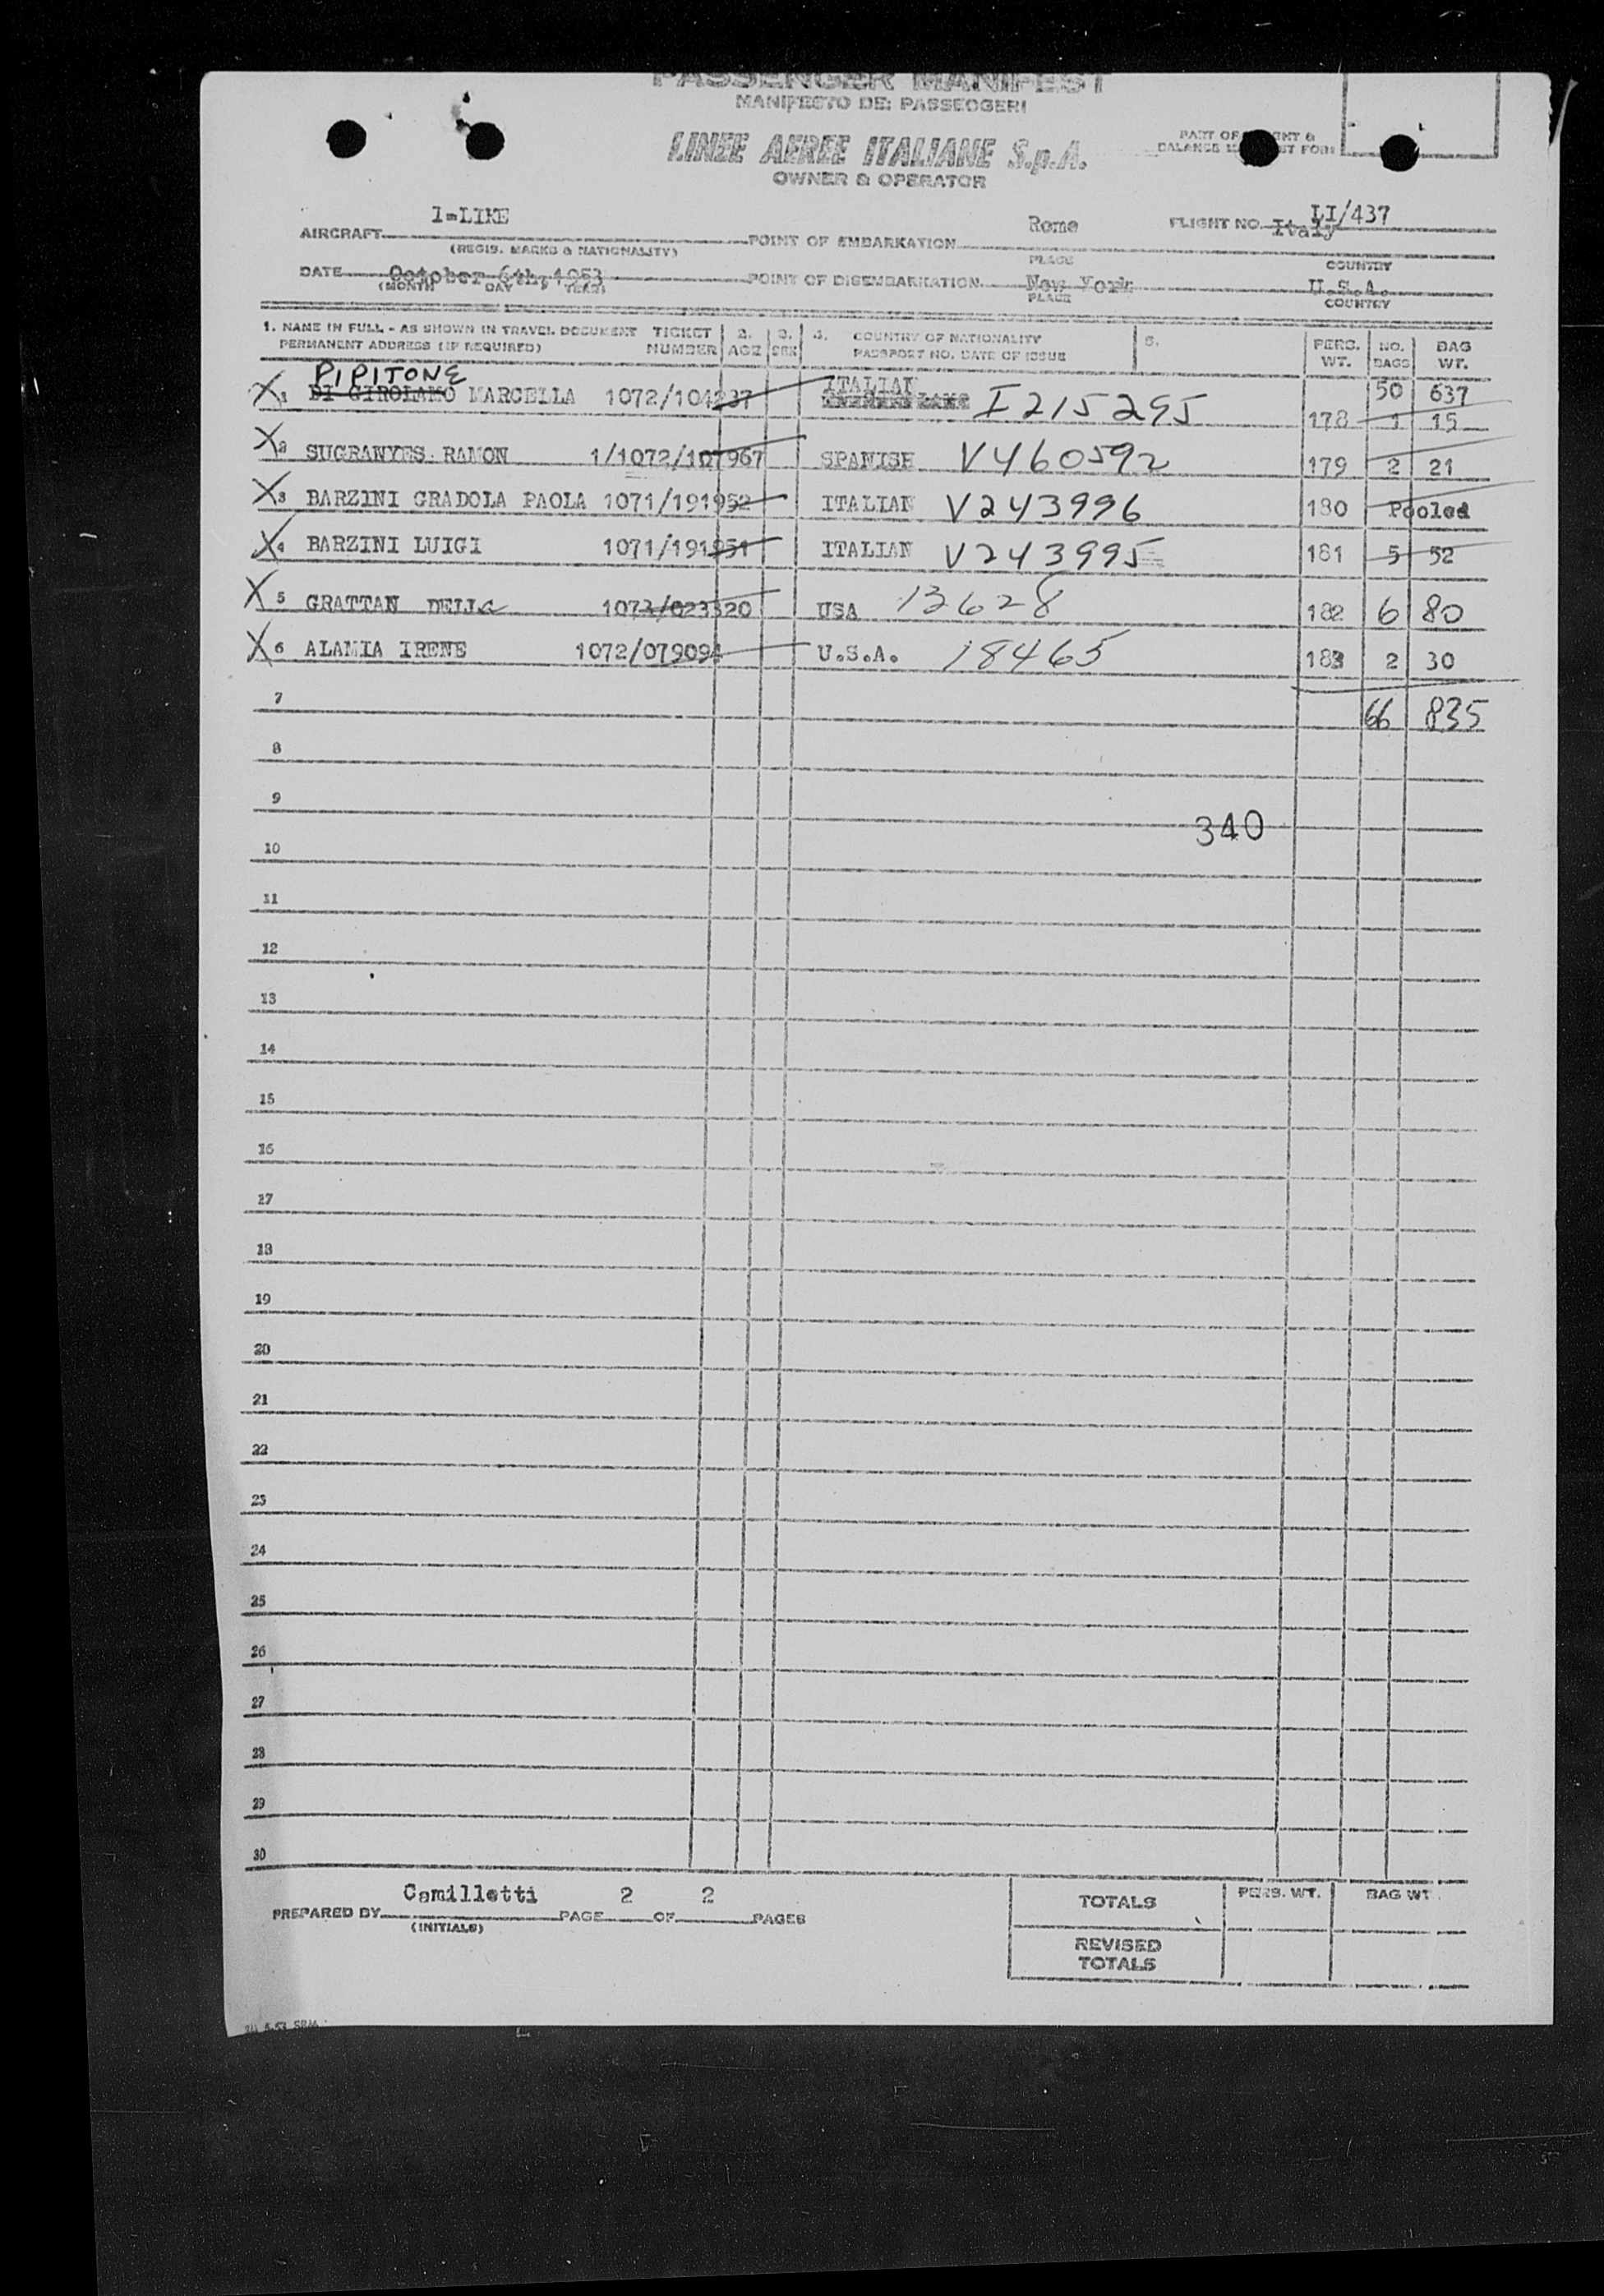 PASSENGER MANIFEST
MANIFESTO DEI PASSEGGERI
LINEE AEREE ITALIANE S.p.A.
OWNER & OPERATOR
PART OF
BALANCE
AIRCRAFT I-LIKE
(REGIS. MARKS & NATIONALITY)
POINT OF EMBARKATION Rome Italy
PLACE COUNTRY
FLIGHT NO. LI/437
DATE October 6th, 1953
(MONTH DAY YEAR)
POINT OF DISEMBARKATION New York U.S.A.
PLACE COUNTRY
1. NAME IN FULL - AS SHOWN IN TRAVEL DOCUMENT TICKET 2. 3. 4. COUNTRY OF NATIONALITY 5. PERS. NO. BAG
PERMANENT ADDRESS (IF REQUIRED) NUMBER AGE SEX PASSPORT NO. DATE OF ISSUE WT. BAGS WT.
PIPITONE
50 637
X 1 DI GIROLAMO MARCELLA 1072/104237 ITALIAN I215295 178 1 15
X 2 SUGRANYES RAMON 1/1072/107967 SPANISH V460592 179 2 21
X 3 BARZINI GRADOLA PAOLA 1071/191952 ITALIAN V243996 180 Pooled
X 4 BARZINI LUIGI 1071/191951 ITALIAN V243995 181 5 52
X 5 GRATTAN DELLA 1072/023320 USA 13628 182 6 80
X 6 ALAMIA IRENE 1072/079094 U.S.A. 18465 183 2 30
7 66 835
8
9
340
10
11
12
13
14
15
16
17
18
19
20
21
22
23
24
25
26
27
28
29
30
PREPARED BY Camilletti PAGE 2 OF 2 PAGES
(INITIALS)
TOTALS PERS. WT. BAG WT.
REVISED
TOTALS